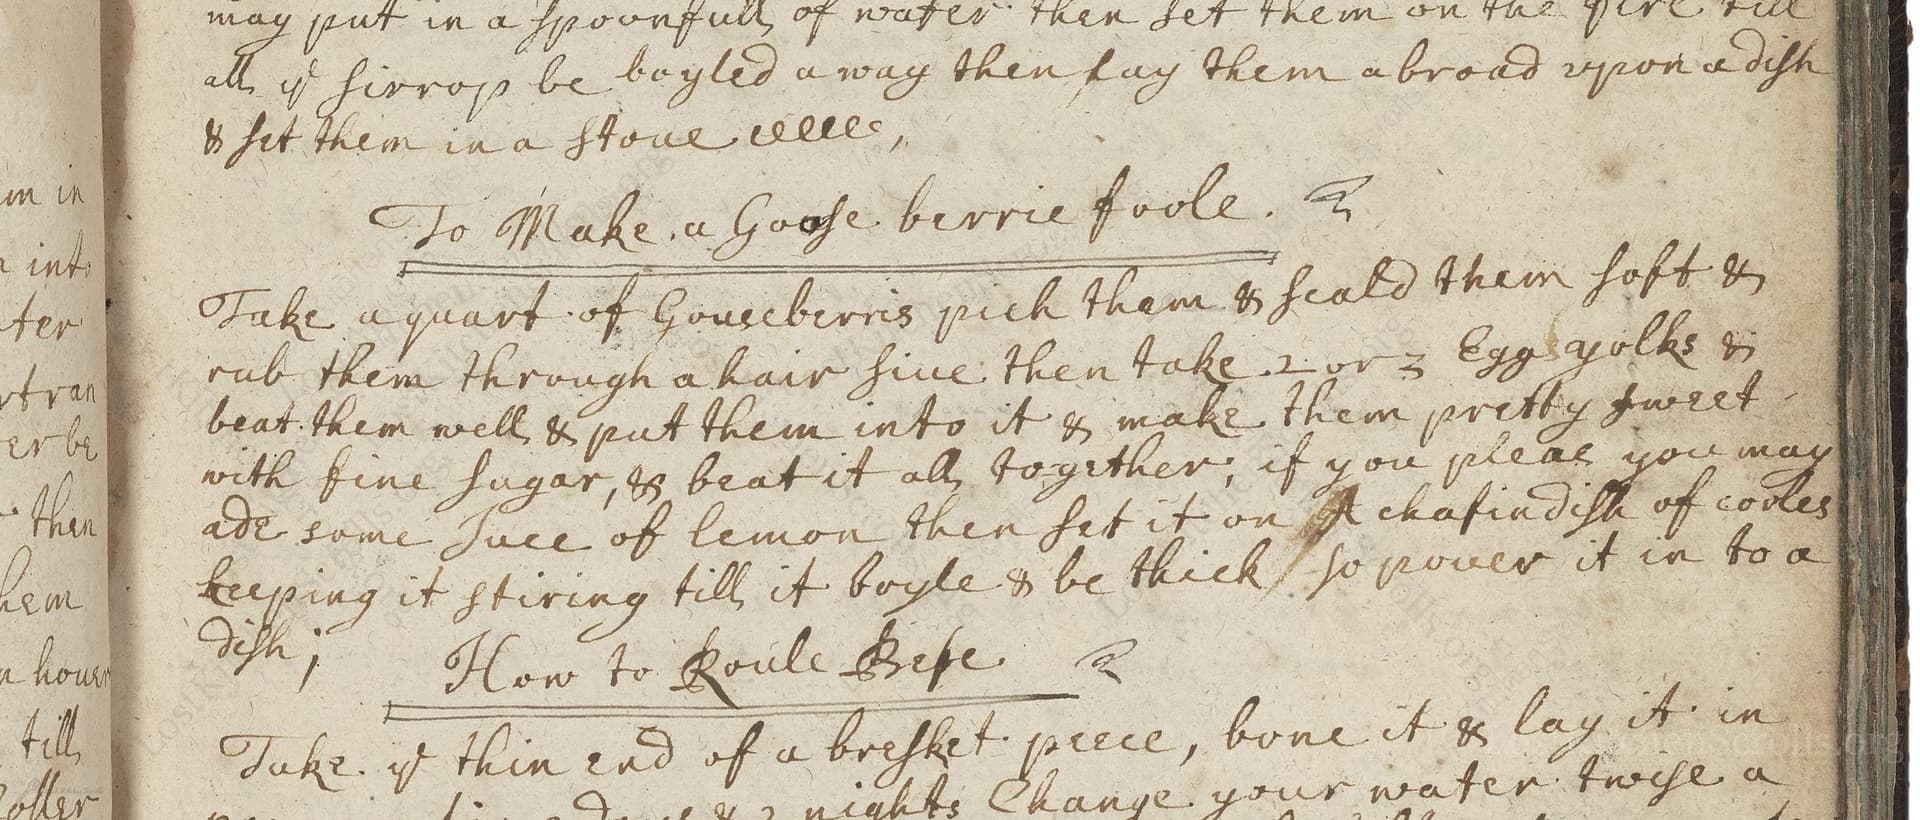 may put in a spoonfull of water then set them on the fire till
all ye sirrop be boyled a way then lay them abroad upon a dish
& set them in a stoue
To Make a Goose berrie foole.
Take a quart of Gouseberris pick them & scald them soft &
rub them through a hair siue then take 2 or 3 Egg yolks &
beat them well & put them into it & make them pretty sweet
with fine sugar, & beat it all together; if you pleae you may
ade some Juce of lemon then set it on A chafindish of cooles
keeping it stiring till it boyle & be thick so pouer it in to a
dish;
How to Roule Befe
Take ye thin end of a bresket peece, bone it & lay it in
nights Change your water twise a
m in
into
ter
er be
then
hem
houer
till